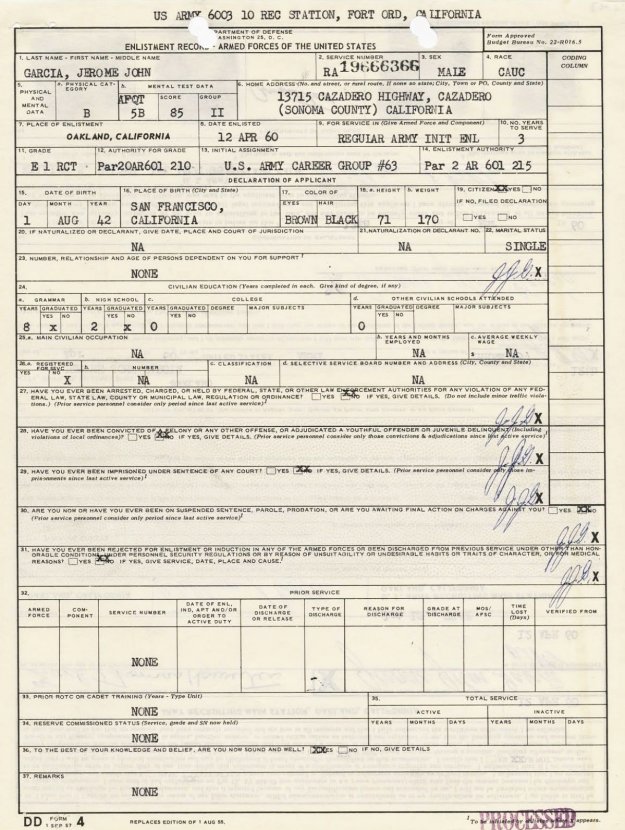 US ARMY 6003 10 REC STATION, FORT ORD, CALIFORNIA
DEPARTMENT OF DEFENSE
WASHINGTON 25, D. C.
ENLISTMENT RECORD - ARMED FORCES OF THE UNITED STATES
Form Approved
Budget Bureau No. 22-R016.5
1. LAST NAME - FIRST NAME - MIDDLE NAME
GARCIA, JEROME JOHN
2. SERVICE NUMBER
RA 19666366
3. SEX
MALE
4. RACE
CAUC
CODING COLUMN
5. PHYSICAL AND MENTAL DATA
a. PHYSICAL CATEGORY
B
b. MENTAL TEST DATA
AFQT SCORE GROUP
5B 85 II
6. HOME ADDRESS (No. and street, or rural route, if none so state; City, Town or PO, County and State)
13715 CAZADERO HIGHWAY, CAZADERO
(SONOMA COUNTY) CALIFORNIA
7. PLACE OF ENLISTMENT
OAKLAND, CALIFORNIA
8. DATE ENLISTED
12 APR 60
9. FOR SERVICE IN (Give Armed Force and Component)
REGULAR ARMY INIT ENL
10. NO. YEARS TO SERVE
3
11. GRADE
E1 RCT
12. AUTHORITY FOR GRADE
Par20AR601 210
13. INITIAL ASSIGNMENT
U.S. ARMY CAREER GROUP #63
14. ENLISTMENT AUTHORITY
Par 2 AR 601 215
DECLARATION OF APPLICANT
15. DATE OF BIRTH
DAY MONTH YEAR
1 AUG 42
16. PLACE OF BIRTH (City and State)
SAN FRANCISCO,
CALIFORNIA
17. COLOR OF
EYES HAIR
BROWN BLACK
18. a. HEIGHT b. WEIGHT
71 170
19. CITIZEN XX YES NO
IF NO, FILED DECLARATION
YES NO
20. IF NATURALIZED OR DECLARANT, GIVE DATE, PLACE AND COURT OF JURISDICTION
NA
21. NATURALIZATION OR DECLARATION NO.
NA
22. MARITAL STATUS
SINGLE
23. NUMBER, RELATIONSHIP AND AGE OF PERSONS DEPENDENT ON YOU FOR SUPPORT 1
NONE
J.J.G. X
24. CIVILIAN EDUCATION (Years completed in each. Give kind of degree, if any)
a. GRAMMAR b. HIGH SCHOOL c. COLLEGE d. OTHER CIVILIAN SCHOOLS ATTENDED
YEARS GRADUATED YEARS GRADUATED YEARS GRADUATED DEGREE MAJOR SUBJECTS YEARS GRADUATED DEGREE MAJOR SUBJECTS
YES NO YES NO YES NO YES NO
8 x 2 x 0 0
25. a. MAIN CIVILIAN OCCUPATION
NA
b. YEARS AND MONTHS EMPLOYED
NA
c. AVERAGE WEEKLY WAGE
$ NA
26. a. REGISTERED FOR SSVC
YES NO
X
b. NUMBER
NA
c. CLASSIFICATION
NA
d. SELECTIVE SERVICE BOARD NUMBER AND ADDRESS (City, County and State)
NA
27. HAVE YOU EVER BEEN ARRESTED, CHARGED, OR HELD BY FEDERAL, STATE, OR OTHER LAW ENFORCEMENT AUTHORITIES FOR ANY VIOLATION OF ANY FED-
ERAL LAW, STATE LAW, COUNTY OR MUNICIPAL LAW, REGULATION OR ORDINANCE? YES XX NO IF YES, GIVE DETAILS. (Do not include minor traffic viola-
tions.) (Prior service personnel consider only period since last active service) 1
J.J.G X
28. HAVE YOU EVER BEEN CONVICTED OF A FELONY OR ANY OTHER OFFENSE, OR ADJUDICATED A YOUTHFUL OFFENDER OR JUVENILE DELINQUENT (Including
violations of local ordinances)? YES XX NO IF YES, GIVE DETAILS. (Prior service personnel consider only those convictions & adjudications since last active service) 1
J.J.G. X
29. HAVE YOU EVER BEEN IMPRISONED UNDER SENTENCE OF ANY COURT? YES XX NO IF YES, GIVE DETAILS. (Prior service personnel consider only those im-
prisonments since last active service) 1
J.J.G X
30. ARE YOU NOW OR HAVE YOU EVER BEEN ON SUSPENDED SENTENCE, PAROLE, PROBATION, OR ARE YOU AWAITING FINAL ACTION ON CHARGES AGAINST YOU? YES XX NO
(Prior service personnel consider only period since last active service) 1
J.J.G X
31. HAVE YOU EVER BEEN REJECTED FOR ENLISTMENT OR INDUCTION IN ANY OF THE ARMED FORCES OR BEEN DISCHARGED FROM PREVIOUS SERVICE UNDER OTHER THAN HON-
ORABLE CONDITIONS, UNDER PERSONNEL SECURITY REGULATIONS OR BY REASON OF UNSUITABILITY OR UNDESIRABLE HABITS OR TRAITS OF CHARACTER, OR FOR MEDICAL
REASONS? YES XX NO IF YES, GIVE SERVICE, DATE, PLACE AND CAUSE 1
J.J.G. X
32. PRIOR SERVICE
ARMED FORCE
COM-PONENT
SERVICE NUMBER
DATE OF ENL, IND, APT AND/OR ORDER TO ACTIVE DUTY
DATE OF DISCHARGE OR RELEASE
TYPE OF DISCHARGE
REASON FOR DISCHARGE
GRADE AT DISCHARGE
MOS/ AFSC
TIME LOST (Days)
VERIFIED FROM
NONE
33. PRIOR ROTC OR CADET TRAINING (Years - Type Unit)
NONE
34. RESERVE COMMISSIONED STATUS (Service, grade and SN now held)
NONE
35. TOTAL SERVICE
ACTIVE INACTIVE
YEARS MONTHS DAYS YEARS MONTHS DAYS
36. TO THE BEST OF YOUR KNOWLEDGE AND BELIEF, ARE YOU NOW SOUND AND WELL? XX YES NO IF NO, GIVE DETAILS
37. REMARKS
NONE
DD FORM 1 SEP 57 4
REPLACES EDITION OF 1 AUG 55.
1 To be initialed by enlistee where X appears.
PROCESSED